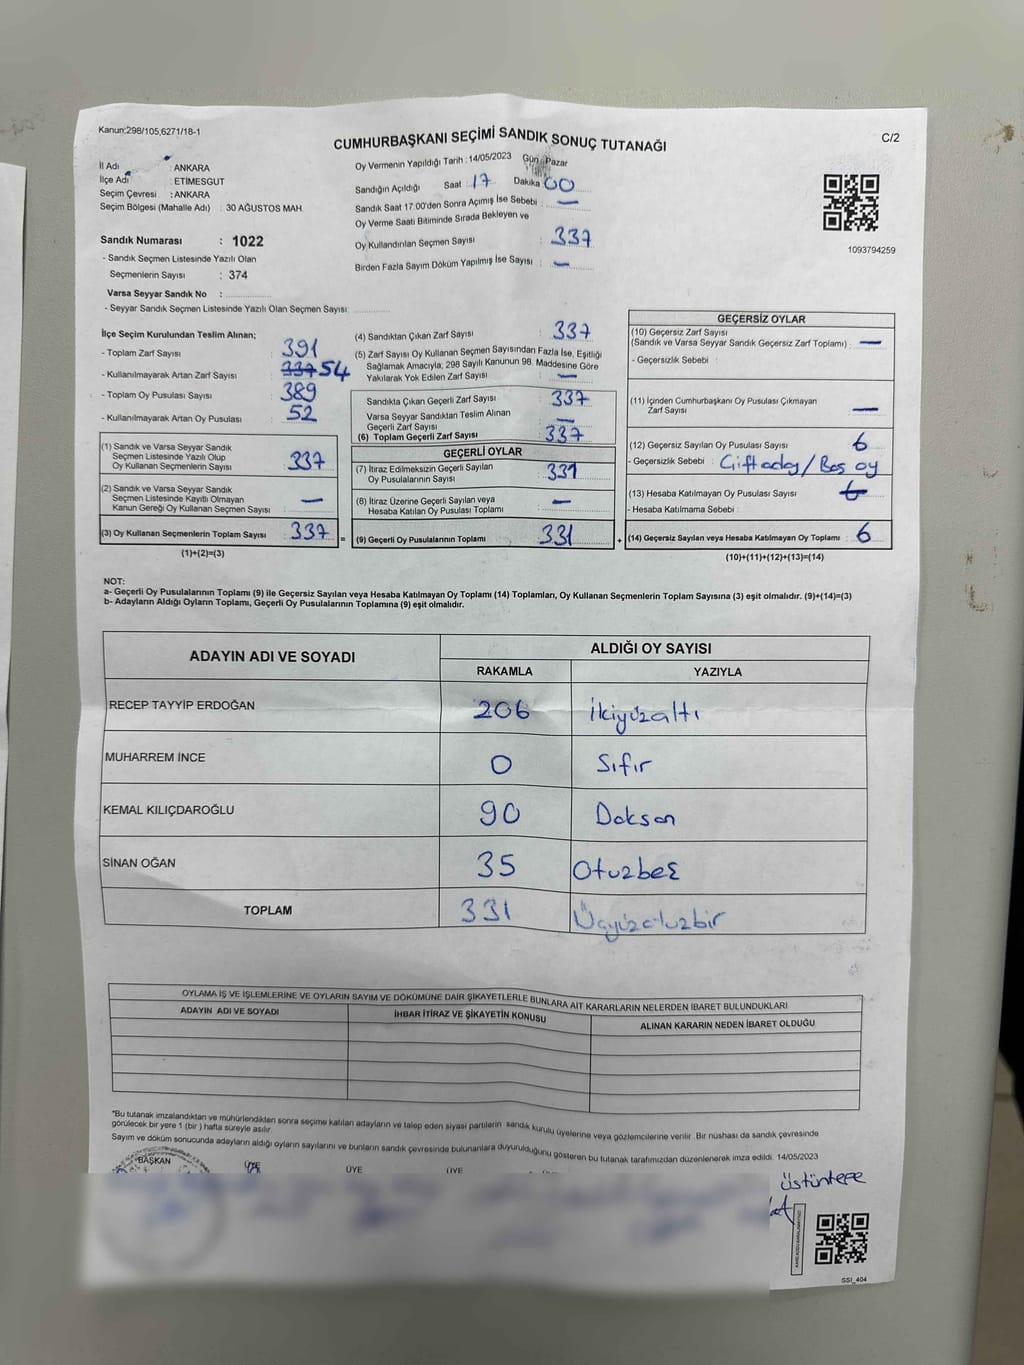 Kanun:298/105,6271/18-1
C/2
CUMHURBAŞKANI SEÇİMİ SANDIK SONUÇ TUTANAĞI
İl Adı : ANKARA
İlçe Adı : ETİMESGUT
Seçim Çevresi : ANKARA
Seçim Bölgesi (Mahalle Adı) : 30 AĞUSTOS MAH.
Sandık Numarası : 1022
- Sandık Seçmen Listesinde Yazılı Olan
Seçmenlerin Sayısı : 374
Varsa Seyyar Sandık No :
- Seyyar Sandık Seçmen Listesinde Yazılı Olan Seçmen Sayısı:
Oy Vermenin Yapıldığı Tarih : 14/05/2023 Gün : Pazar
Sandığın Açıldığı Saat 17 Dakika 00
Sandık Saat 17:00'den Sonra Açımış İse Sebebi : —
Oy Verme Saati Bitiminde Sırada Bekleyen ve
Oy Kullandırılan Seçmen Sayısı : 337
Birden Fazla Sayım Döküm Yapılmış İse Sayısı : —
1093794259
İlçe Seçim Kurulundan Teslim Alınan;
- Toplam Zarf Sayısı : 391
- Kullanılmayarak Artan Zarf Sayısı : 337 54
- Toplam Oy Pusulası Sayısı : 389
- Kullanılmayarak Artan Oy Pusulası : 52
(1) Sandık ve Varsa Seyyar Sandık
Seçmen Listesinde Yazılı Olup
Oy Kullanan Seçmenlerin Sayısı : 337
(2) Sandık ve Varsa Seyyar Sandık
Seçmen Listesinde Kayıtlı Olmayan
Kanun Gereği Oy Kullanan Seçmen Sayısı : —
(3) Oy Kullanan Seçmenlerin Toplam Sayısı : 337
(1)+(2)=(3)
(4) Sandıktan Çıkan Zarf Sayısı : 337
(5) Zarf Sayısı Oy Kullanan Seçmen Sayısından Fazla İse, Eşitliği
Sağlamak Amacıyla; 298 Sayılı Kanunun 98. Maddesine Göre
Yakılarak Yok Edilen Zarf Sayısı : —
Sandıkta Çıkan Geçerli Zarf Sayısı : 337
Varsa Seyyar Sandıktan Teslim Alınan
Geçerli Zarf Sayısı : —
(6) Toplam Geçerli Zarf Sayısı : 337
GEÇERLİ OYLAR
(7) İtiraz Edilmeksizin Geçerli Sayılan
Oy Pusulalarının Sayısı : 331
(8) İtiraz Üzerine Geçerli Sayılan veya
Hesaba Katılan Oy Pusulası Toplamı : —
= (9) Geçerli Oy Pusulalarının Toplamı : 331
GEÇERSİZ OYLAR
(10) Geçersiz Zarf Sayısı
(Sandık ve Varsa Seyyar Sandık Geçersiz Zarf Toplamı) : —
- Geçersizlik Sebebi :
(11) İçinden Cumhurbaşkanı Oy Pusulası Çıkmayan
Zarf Sayısı : —
(12) Geçersiz Sayılan Oy Pusulası Sayısı : 6
- Geçersizlik Sebebi : Çift aday / Boş oy
(13) Hesaba Katılmayan Oy Pusulası Sayısı : 6
- Hesaba Katılmama Sebebi :
+ (14) Geçersiz Sayılan veya Hesaba Katılmayan Oy Toplamı : 6
(10)+(11)+(12)+(13)=(14)
NOT:
a- Geçerli Oy Pusulalarının Toplamı (9) ile Geçersiz Sayılan veya Hesaba Katılmayan Oy Toplamı (14) Toplamları, Oy Kullanan Seçmenlerin Toplam Sayısına (3) eşit olmalıdır. (9)+(14)=(3)
b- Adayların Aldığı Oyların Toplamı, Geçerli Oy Pusulalarının Toplamına (9) eşit olmalıdır.
ADAYIN ADI VE SOYADI ALDIĞI OY SAYISI
RAKAMLA YAZIYLA
RECEP TAYYİP ERDOĞAN 206 İkiyüzaltı
MUHARREM İNCE 0 Sıfır
KEMAL KILIÇDAROĞLU 90 Doksan
SİNAN OĞAN 35 Otuzbeş
TOPLAM 331 Üçyüzotuzbir
OYLAMA İŞ VE İŞLEMLERİNE VE OYLARIN SAYIM VE DÖKÜMÜNE DAİR ŞİKAYETLERLE BUNLARA AİT KARARLARIN NELERDEN İBARET BULUNDUKLARI
ADAYIN ADI VE SOYADI İHBAR İTİRAZ VE ŞİKAYETİN KONUSU ALINAN KARARIN NEDEN İBARET OLDUĞU
"Bu tutanak imzalandıktan ve mühürlendikten sonra seçime katılan adayların ve talep eden siyasi partilerin sandık kurulu üyelerine veya gözlemcilerine verilir. Bir nüshası da sandık çevresinde
görülecek bir yere 1 (bir) hafta süreyle asılır.
Sayım ve döküm sonucunda adayların aldığı oyların sayılarını ve bunların sandık çevresinde bulunanlara duyurulduğunu gösteren bu tutanak tarafımızdan düzenlenerek imza edildi. 14/05/2023
BAŞKAN ÜYE ÜYE ÜYE
Üstüntepe
SSI_404